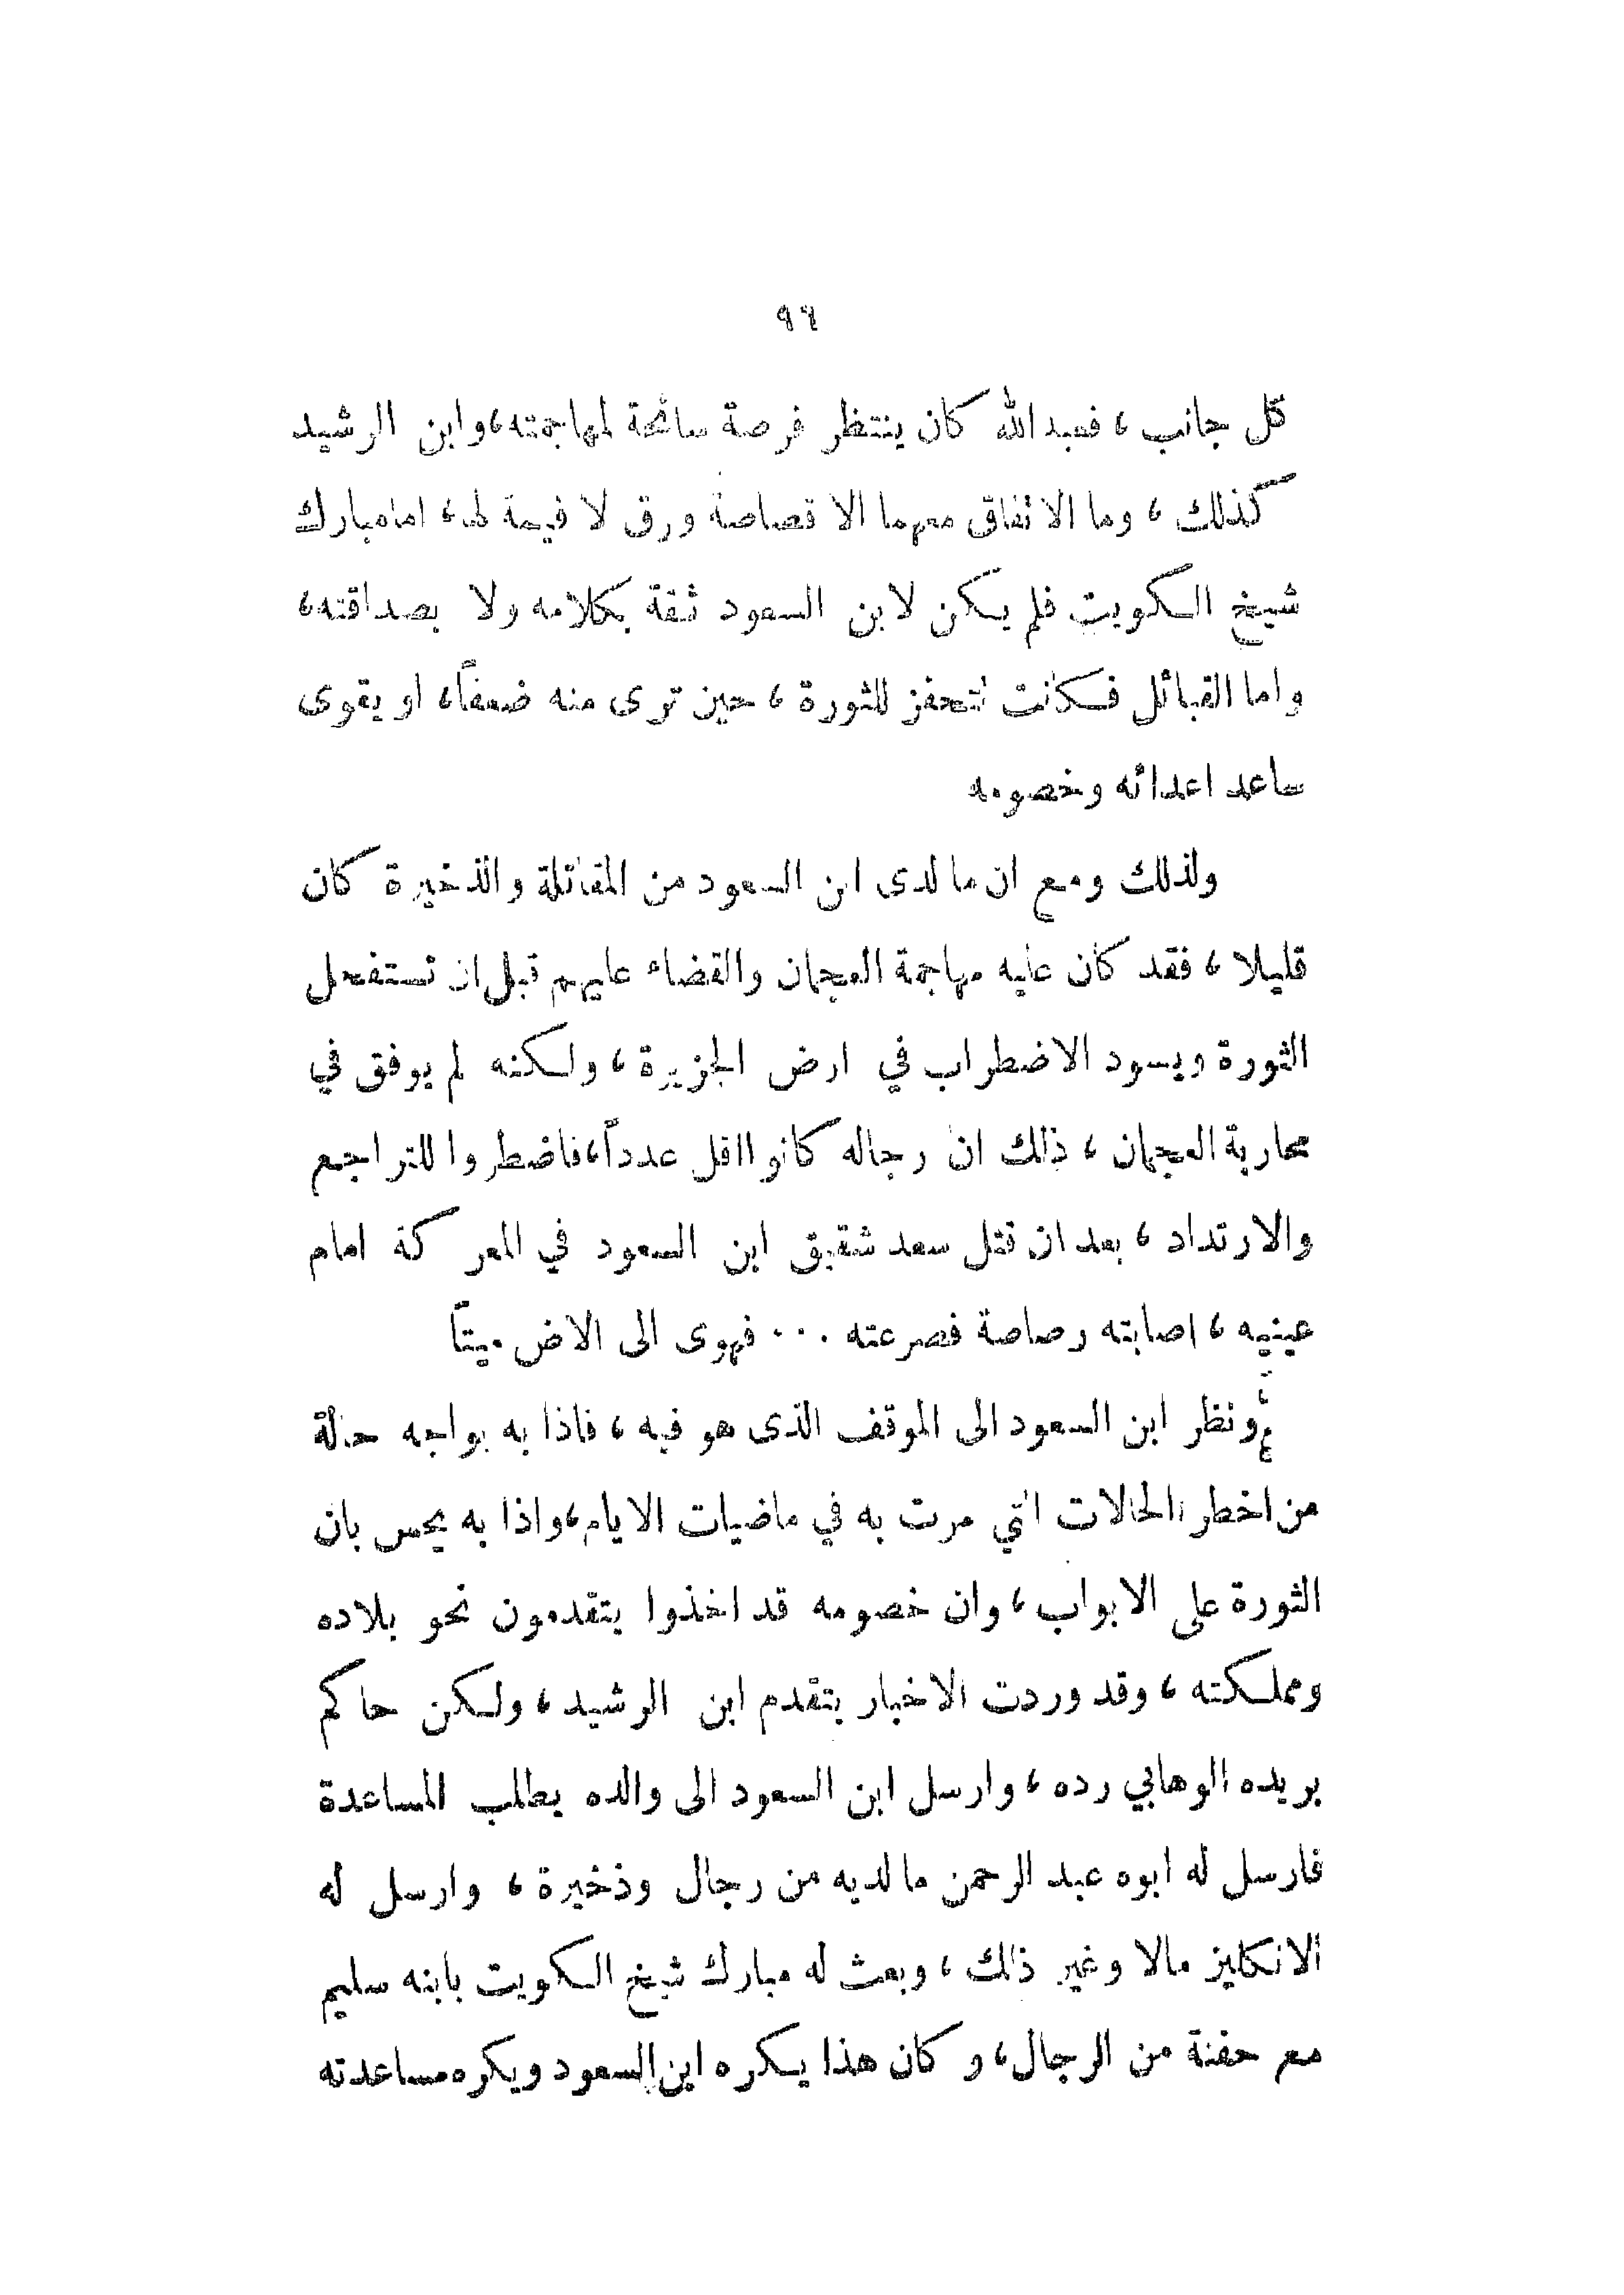 ٩٦
كل جانب ، فعبد الله كان ينتظر فرصة سانحة لمهاجمته، وابن الرشيد
كذلك ، وما الاتفاق معهما الا قصاصة ورق لا قيمة لها، اما مبارك
شيخ الكويت فلم يكن لابن السعود ثقة بكلامه ولا بصداقته،
واما القبائل فكانت تتحفز للثورة ، حين ترى منه ضعفاً، او يقوى
ساعد اعدائه وخصومه
ولذلك ومع ان ما لدى ابن السعود من المقاتلة والذخيرة كان
قليلا ، فقد كان عليه مهاجمة العجمان والقضاء عليهم قبل ان تستفحل
الثورة ويسود الاضطراب في ارض الجزيرة ، ولكنه لم يوفق في
محاربة العجمان ، ذلك ان رجاله كانوا اقل عدداً، فاضطروا للتراجع
والارتداد ، بعد ان قتل سعد شقيق ابن السعود في المعركة امام
عينيه ، اصابته رصاصة فصرعته ... فهوى الى الاض ميتاً
ونظر ابن السعود الى الموقف الذى هو فيه ، فاذا به يواجه حالة
من اخطر الحالات التي مرت به في ماضيات الايام، واذا به يحس بان
الثورة على الابواب ، وان خصومه قد اخذوا يتقدمون نحو بلاده
ومملكته ، وقد وردت الاخبار بتقدم ابن الرشيد ، ولكن حاكم
بريده الوهابي رده ، وارسل ابن السعود الى والده يطلب المساعدة
فارسل له ابوه عبد الرحمن ما لديه من رجال وذخيرة ، وارسل له
الانكليز مالا وغير ذلك ، وبعث له مبارك شيخ الكويت بابنه سليم
مع حفنة من الرجال، وكان هذا يكره ابن السعود ويكره مساعدته